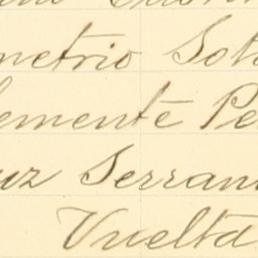 metrio Sot
lemente Pe
uz Serran
Vuelta